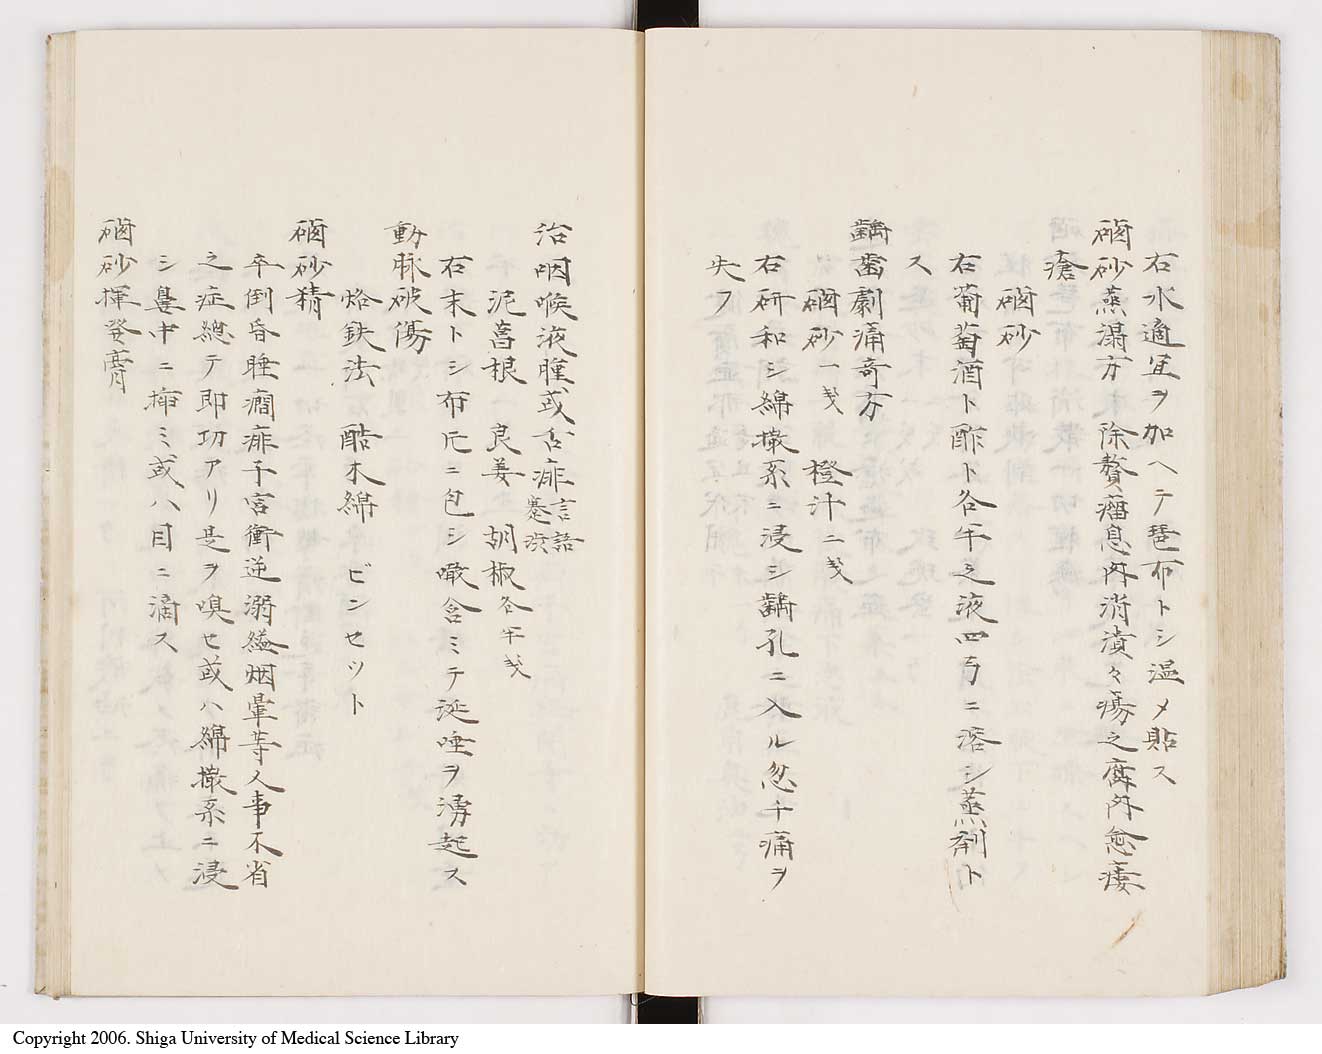 右水適宜ヲ加ヘテ琶布トシ温メ貼ス
硇砂蒸瀑方 除贅瘤息肉消潰々瘍之腐肉愈痿
瘡
硇砂
右葡萄酒ト酢ト各半之液四弓ニ溶シ蒸剤ト
ス
齲歯劇痛奇方
硇砂一戔 橙汁二戔
右研和シ綿撒糸ニ浸シ齲孔ニ入ル忽チ痛ヲ
失フ
治咽喉液腫或舌痱言語蹇渋
泥菖根 良姜 胡椒各半戔
右末トシ布片ニ包シ噉含ミテ涎唾ヲ湧起ス
動脉破傷
烙鉄法 酷木綿 ビンセット
硇砂精
卒倒昏睡癇痱子宮衝逆溺縊烟暈等人事不省
之症總テ即功アリ是ヲ嗅セ或ハ綿撒糸ニ浸
シ鼻中ニ挿ミ或ハ目ニ滴ス
硇砂揮發膏
Copyright 2006. Shiga University of Medical Science Library